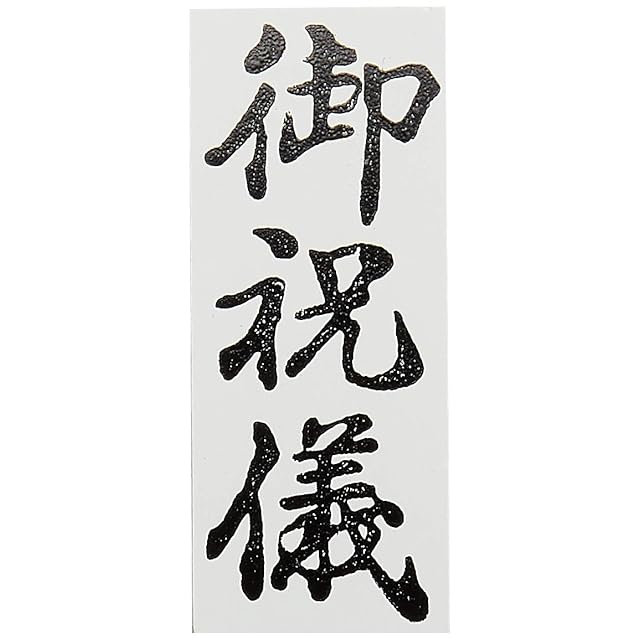 御祝儀